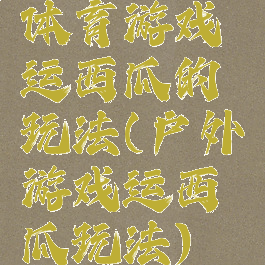 体育游戏
运西瓜的
玩法(户外
游戏运西
瓜玩法)